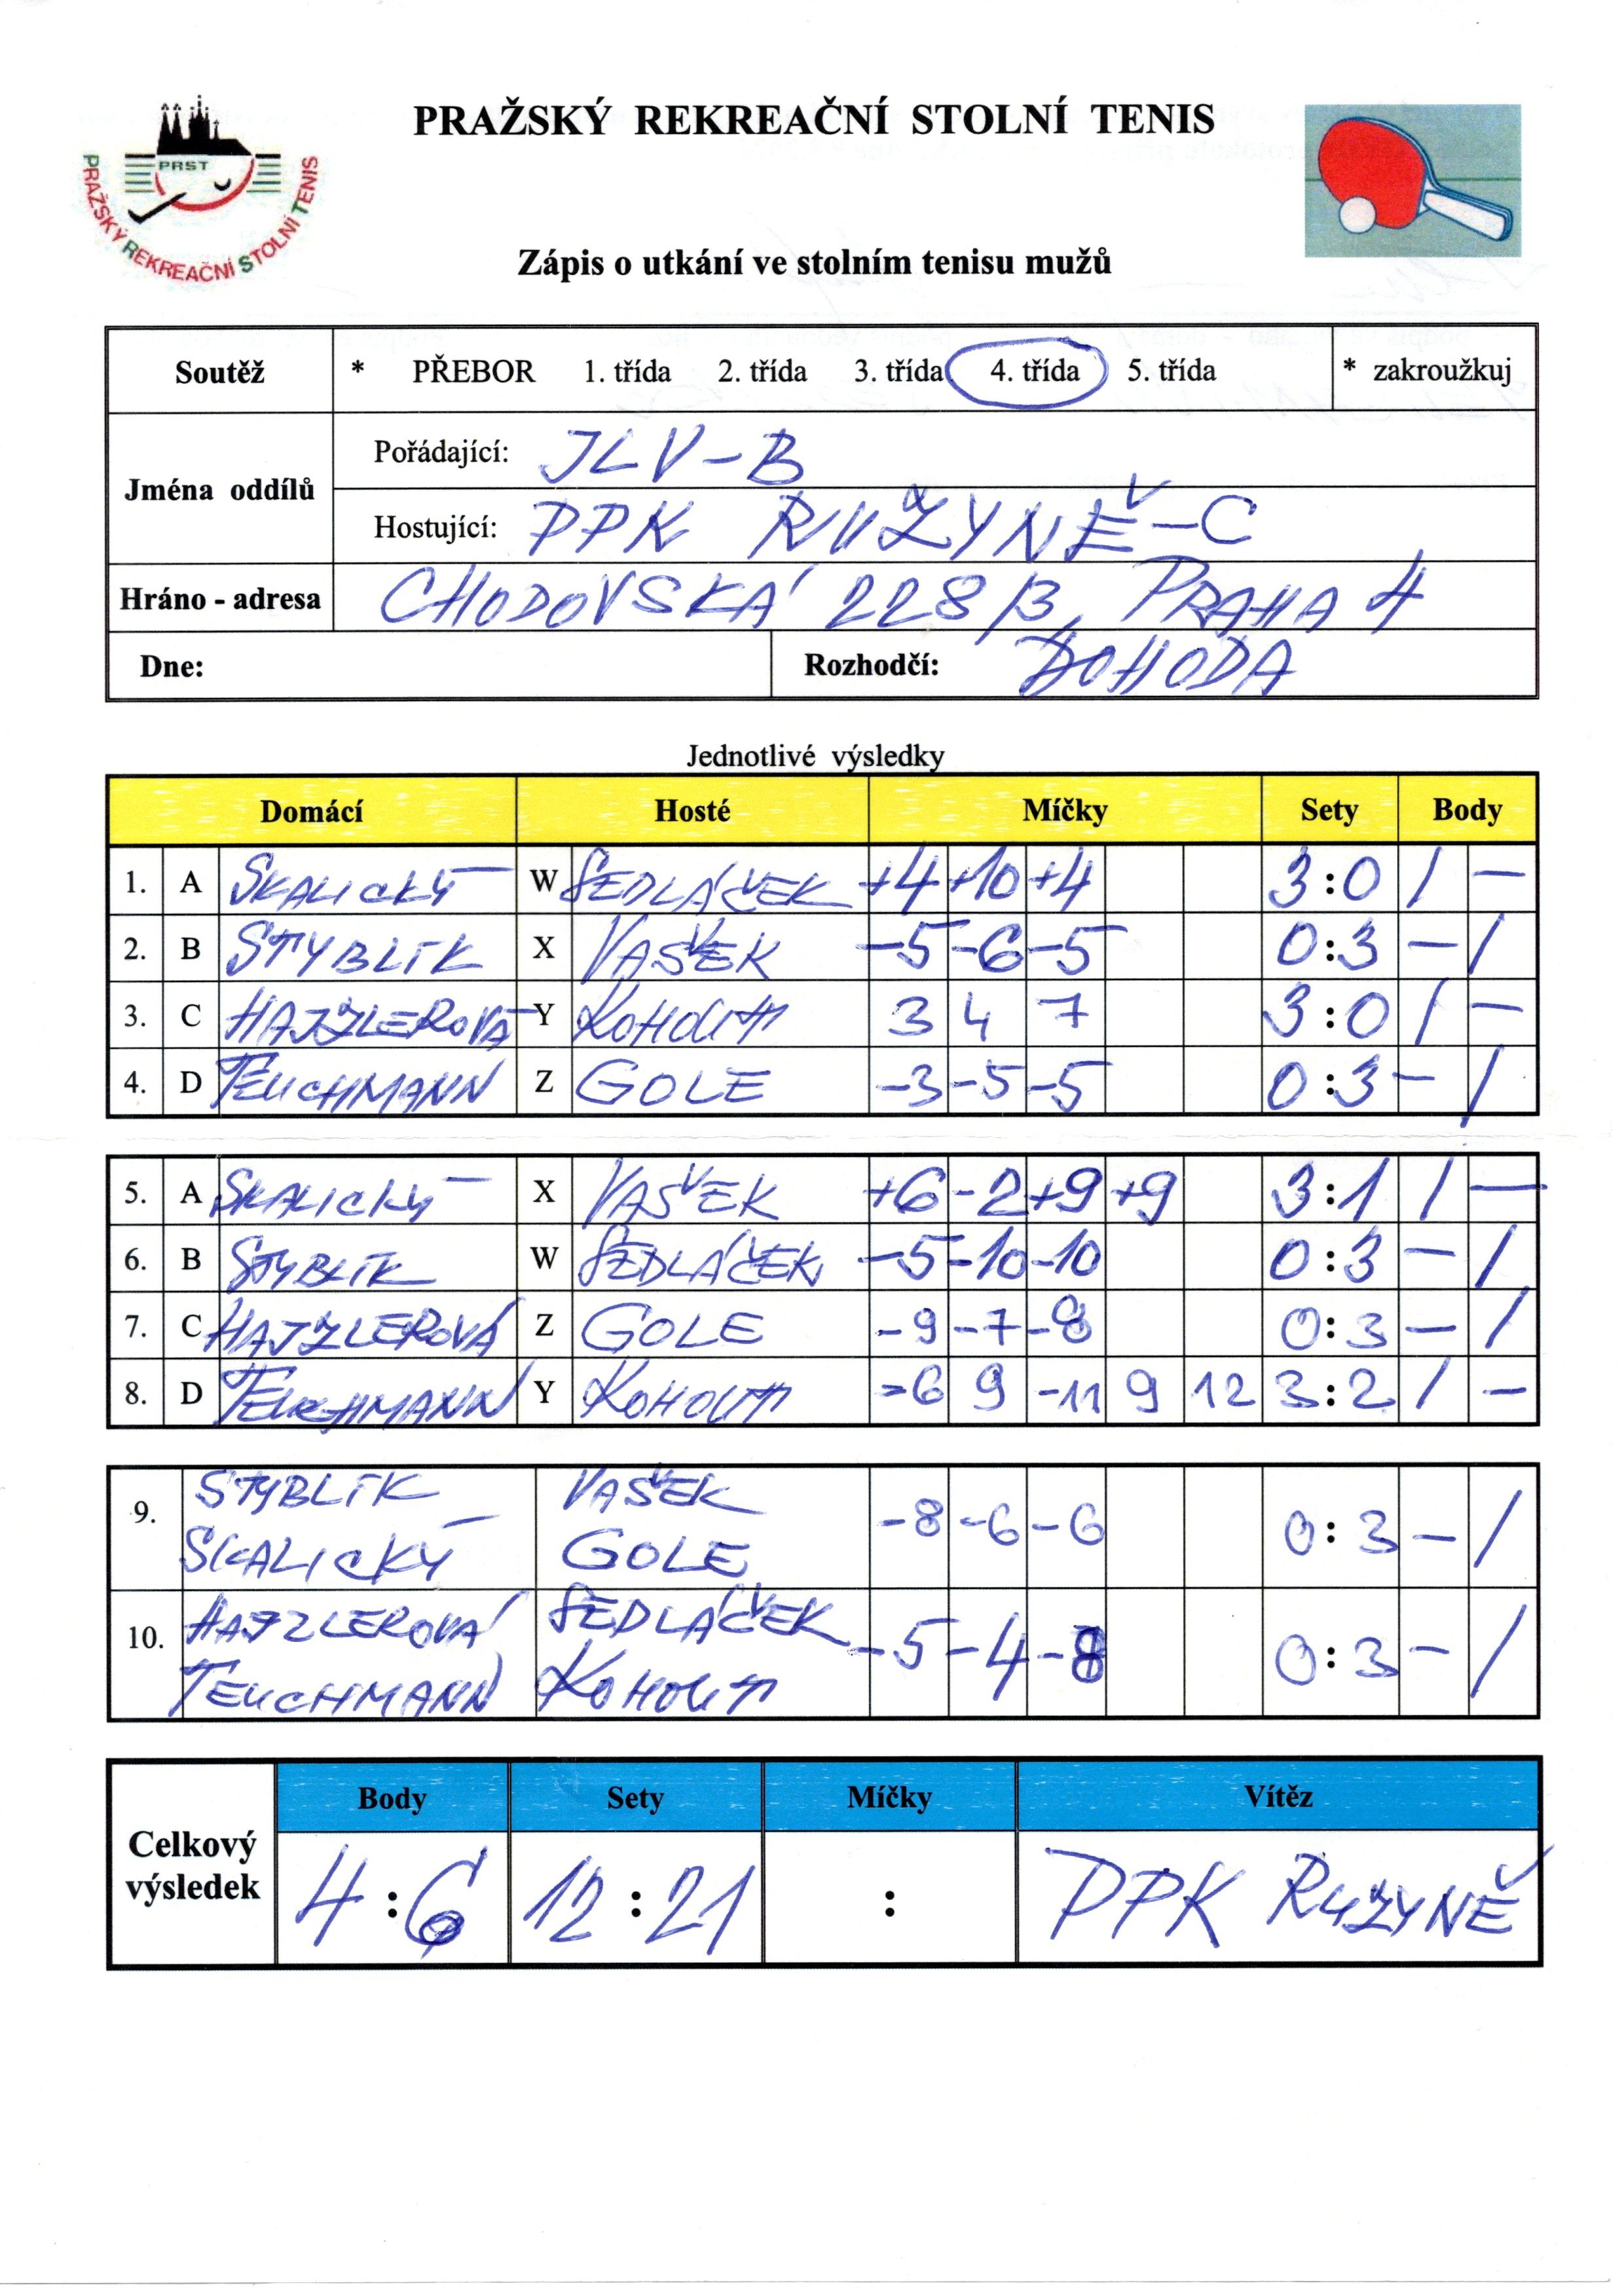 PRAŽSKÝ REKREAČNÍ STOLNÍ TENIS
PRST
PRAŽSKÝ REKREAČNÍ STOLNÍ TENIS
Zápis o utkání ve stolním tenisu mužů
Soutěž * PŘEBOR 1. třída 2. třída 3. třída 4. třída 5. třída * zakroužkuj
Jména oddílů
Pořádající: JLV-B
Hostující: PPK RUZYNĚ-C
Hráno - adresa CHODOVSKÁ 228/3, PRAHA 4
Dne: Rozhodčí: DOHODA
Jednotlivé výsledky
Domácí Hosté Míčky Sety Body
1. A SKALICKÝ W SEDLÁČEK +4 +10 +4 3:0 / —
2. B STYBLÍK X VAŠEK -5 -6 -5 0:3 — /
3. C HAJZLEROVÁ Y KOHOUT 3 4 7 3:0 / —
4. D TEUCHMANN Z GOLE -3 -5 -5 0:3 — /
5. A SKALICKÝ X VAŠEK +6 -2 +9 +9 3:1 / —
6. B STYBLÍK W SEDLÁČEK -5 -10 -10 0:3 — /
7. C HAJZLEROVÁ Z GOLE -9 -7 -8 0:3 — /
8. D TEUCHMANN Y KOHOUT -6 9 -11 9 12 3:2 / —
9. STYBLÍK VAŠEK -8 -6 -6 0:3 — /
SKALICKÝ GOLE
10. HAJZLEROVÁ SEDLÁČEK -5 -4 -8 0:3 — /
TEUCHMANN KOHOUT
Celkový výsledek
Body Sety Míčky Vítěz
4:6 12:21 : PPK RUZYNĚ